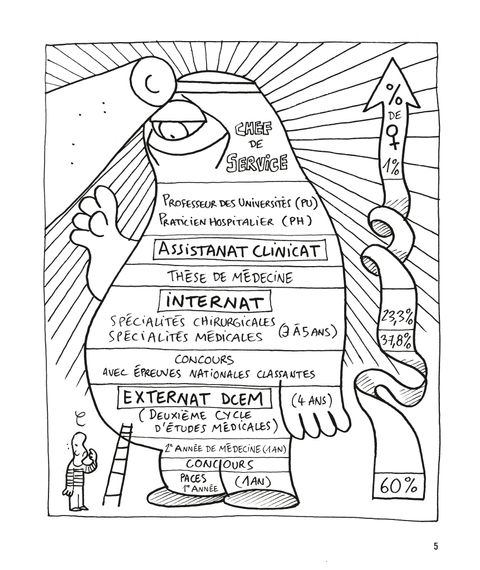 CHEF
DE
SERVICE
PROFESSEUR DES UNIVERSITÉS (PU)
PRATICIEN HOSPITALIER (PH)
ASSISTANAT CLINICAT
THÈSE DE MÉDECINE
INTERNAT
SPÉCIALITÉS CHIRURGICALES
SPÉCIALITÉS MÉDICALES (3 À 5 ANS)
CONCOURS
AVEC ÉPREUVES NATIONALES CLASSANTES
EXTERNAT DCEM (4 ANS)
(DEUXIÈME CYCLE
D'ÉTUDES MÉDICALES)
2e ANNÉE DE MÉDECINE (1 AN)
CONCOURS
PACES (1 AN)
1re ANNÉE
%
DE
♀
1%
23,3%
37,8%
60%
5